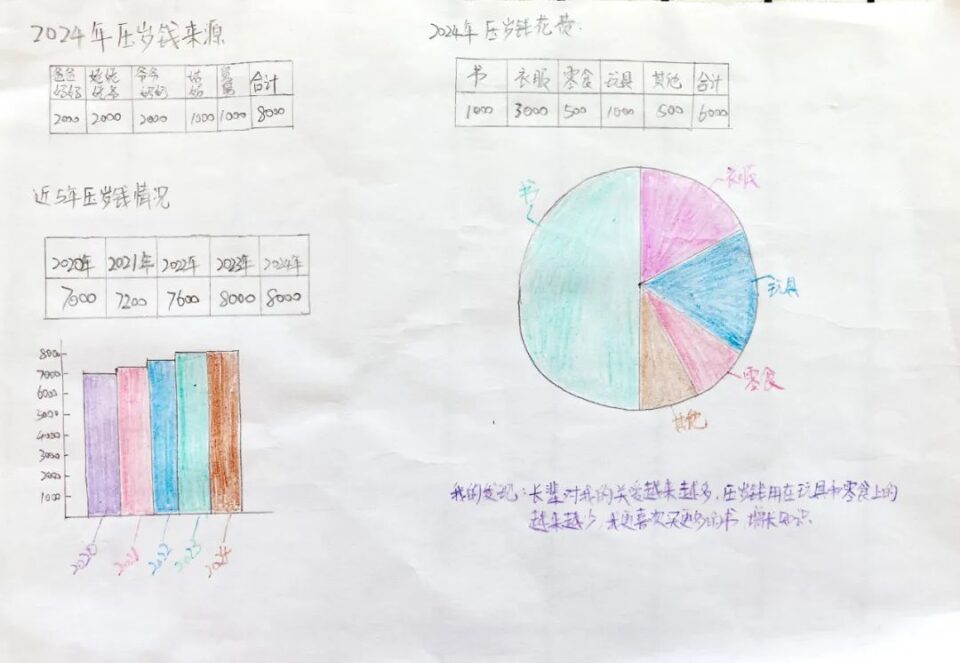 2024年压岁钱来源
爸爸 姥姥 爷爷 姑 舅 合计
妈妈 姥爷 奶奶 姑 舅
2000 2000 2000 1000 1000 8000
近5年压岁钱情况
2020年 2021年 2022年 2023年 2024年
7000 7200 7600 8000 8000
8000
7000
6000
5000
4000
3000
2000
1000
2020 2021 2022 2023 2024
2024年压岁钱花费
书 衣服 零食 玩具 其他 合计
1000 3000 500 1000 500 6000
书
衣服
玩具
零食
其他
我的发现:长辈对我的关爱越来越多,压岁钱用在玩具和零食上的
越来越少,我更喜欢买更多的书 增长知识